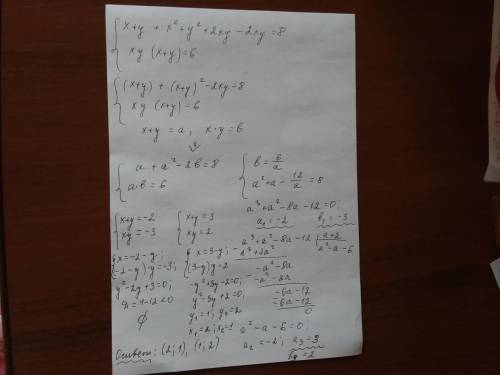 { x+y + x² + y² + 2xy - 2xy = 8
xy (x+y) = 6
{ (x+y) + (x+y)² - 2xy = 8
xy (x+y) = 6
x+y = a, x·y = b
{ a + a² - 2b = 8
a·b = 6
{ b = 6/a
a² + a - 12/a = 8
a³ + a² - 8a - 12 = 0;
a₁ = -2 b₁ = -3
{ x+y = -2
xy = -3
{ x+y = 3
xy = 2
{ x = -2 - y;
(-2-y) y = -3;
y² - 2y + 3 = 0;
D = 4 - 12 < 0
∅
{ x = 3-y;
(3-y) y = 2
-y² + 3y - 2 = 0;
y² - 3y + 2 = 0;
y₁ = 1; y₂ = 2
x₁ = 2; x₂ = 1
- a³ + a² - 8a - 12 | a+2
a³ + 2a² | a² - a - 6
- -a² - 8a
-a² - 2a
- -6a - 12
-6a - 12
0
a² - a - 6 = 0;
a₂ = -2; a₃ = 3
b₃ = 2
Ответ: (2; 1), (1; 2)